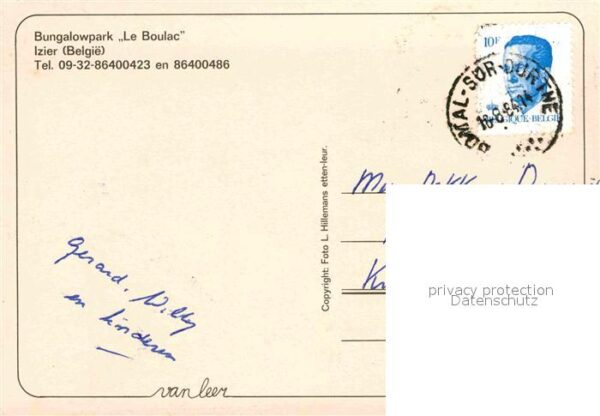 Bungalowpark „Le Boulac"
Izier (België)
Tel. 09-32-86400423 en 86400486
10F
BOMAL-SUR-OURTHE
BELGIQUE-BELGIË
Copyright: Foto L. Hillemans etten-leur.
Gerard, Willy
en kinderen
van leer
privacy protection
Datenschutz